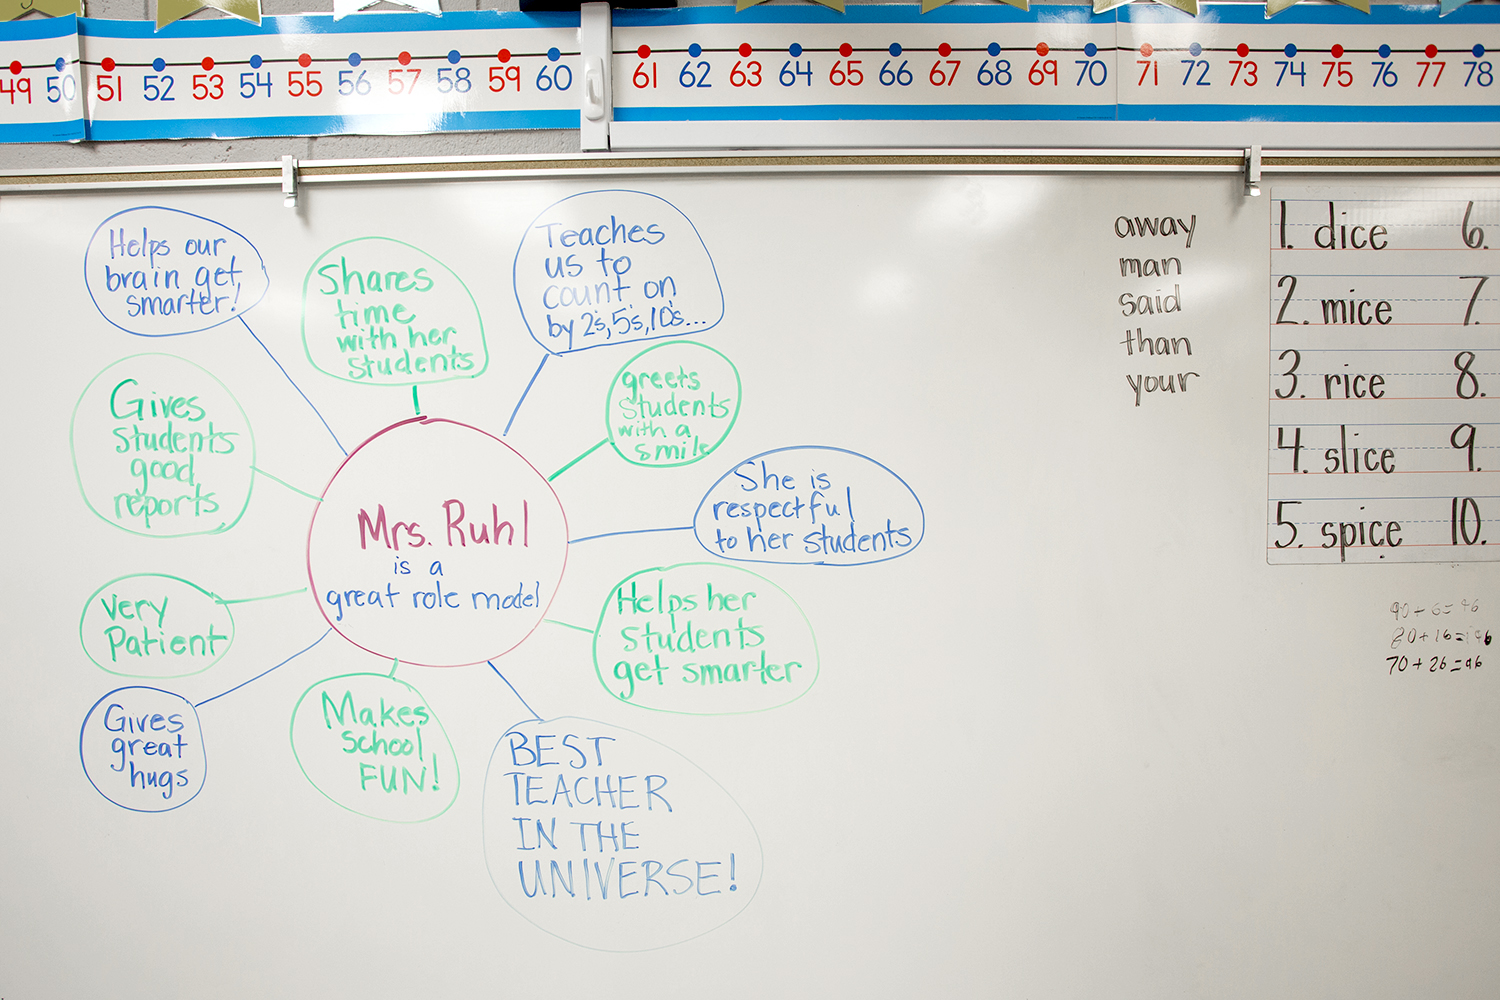 49 50 51 52 53 54 55 56 57 58 59 60 61 62 63 64 65 66 67 68 69 70 71 72 73 74 75 76 77 78
Helps our
brain get
smarter!
Shares
time
with her
students
Teaches
us to
count on
by 2's, 5's, 10's...
greets
students
with a
smile
Gives
students
good
reports
She is
respectful
to her students
Mrs. Ruhl
is a
great role model
Very
Patient
Helps her
students
get smarter
Gives
great
hugs
Makes
school
FUN!
BEST
TEACHER
IN THE
UNIVERSE!
away
man
said
than
your
1. dice 6.
2. mice 7.
3. rice 8.
4. slice 9.
5. spice 10.
90+6=96
80+16=96
70+26=96